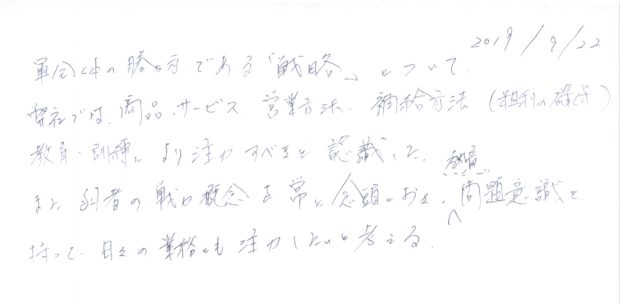 2019/9/22
軍団体の勝ち方である「戦略」について、
弊社では、商品・サービス、営業方法、補給方法(粗利の確保)
教育・訓練、より注力すべきと認識した。
また 弱者の戦略概念を常に念頭におき、問題意識を
持って、日々の業務にも注力したいと考える。